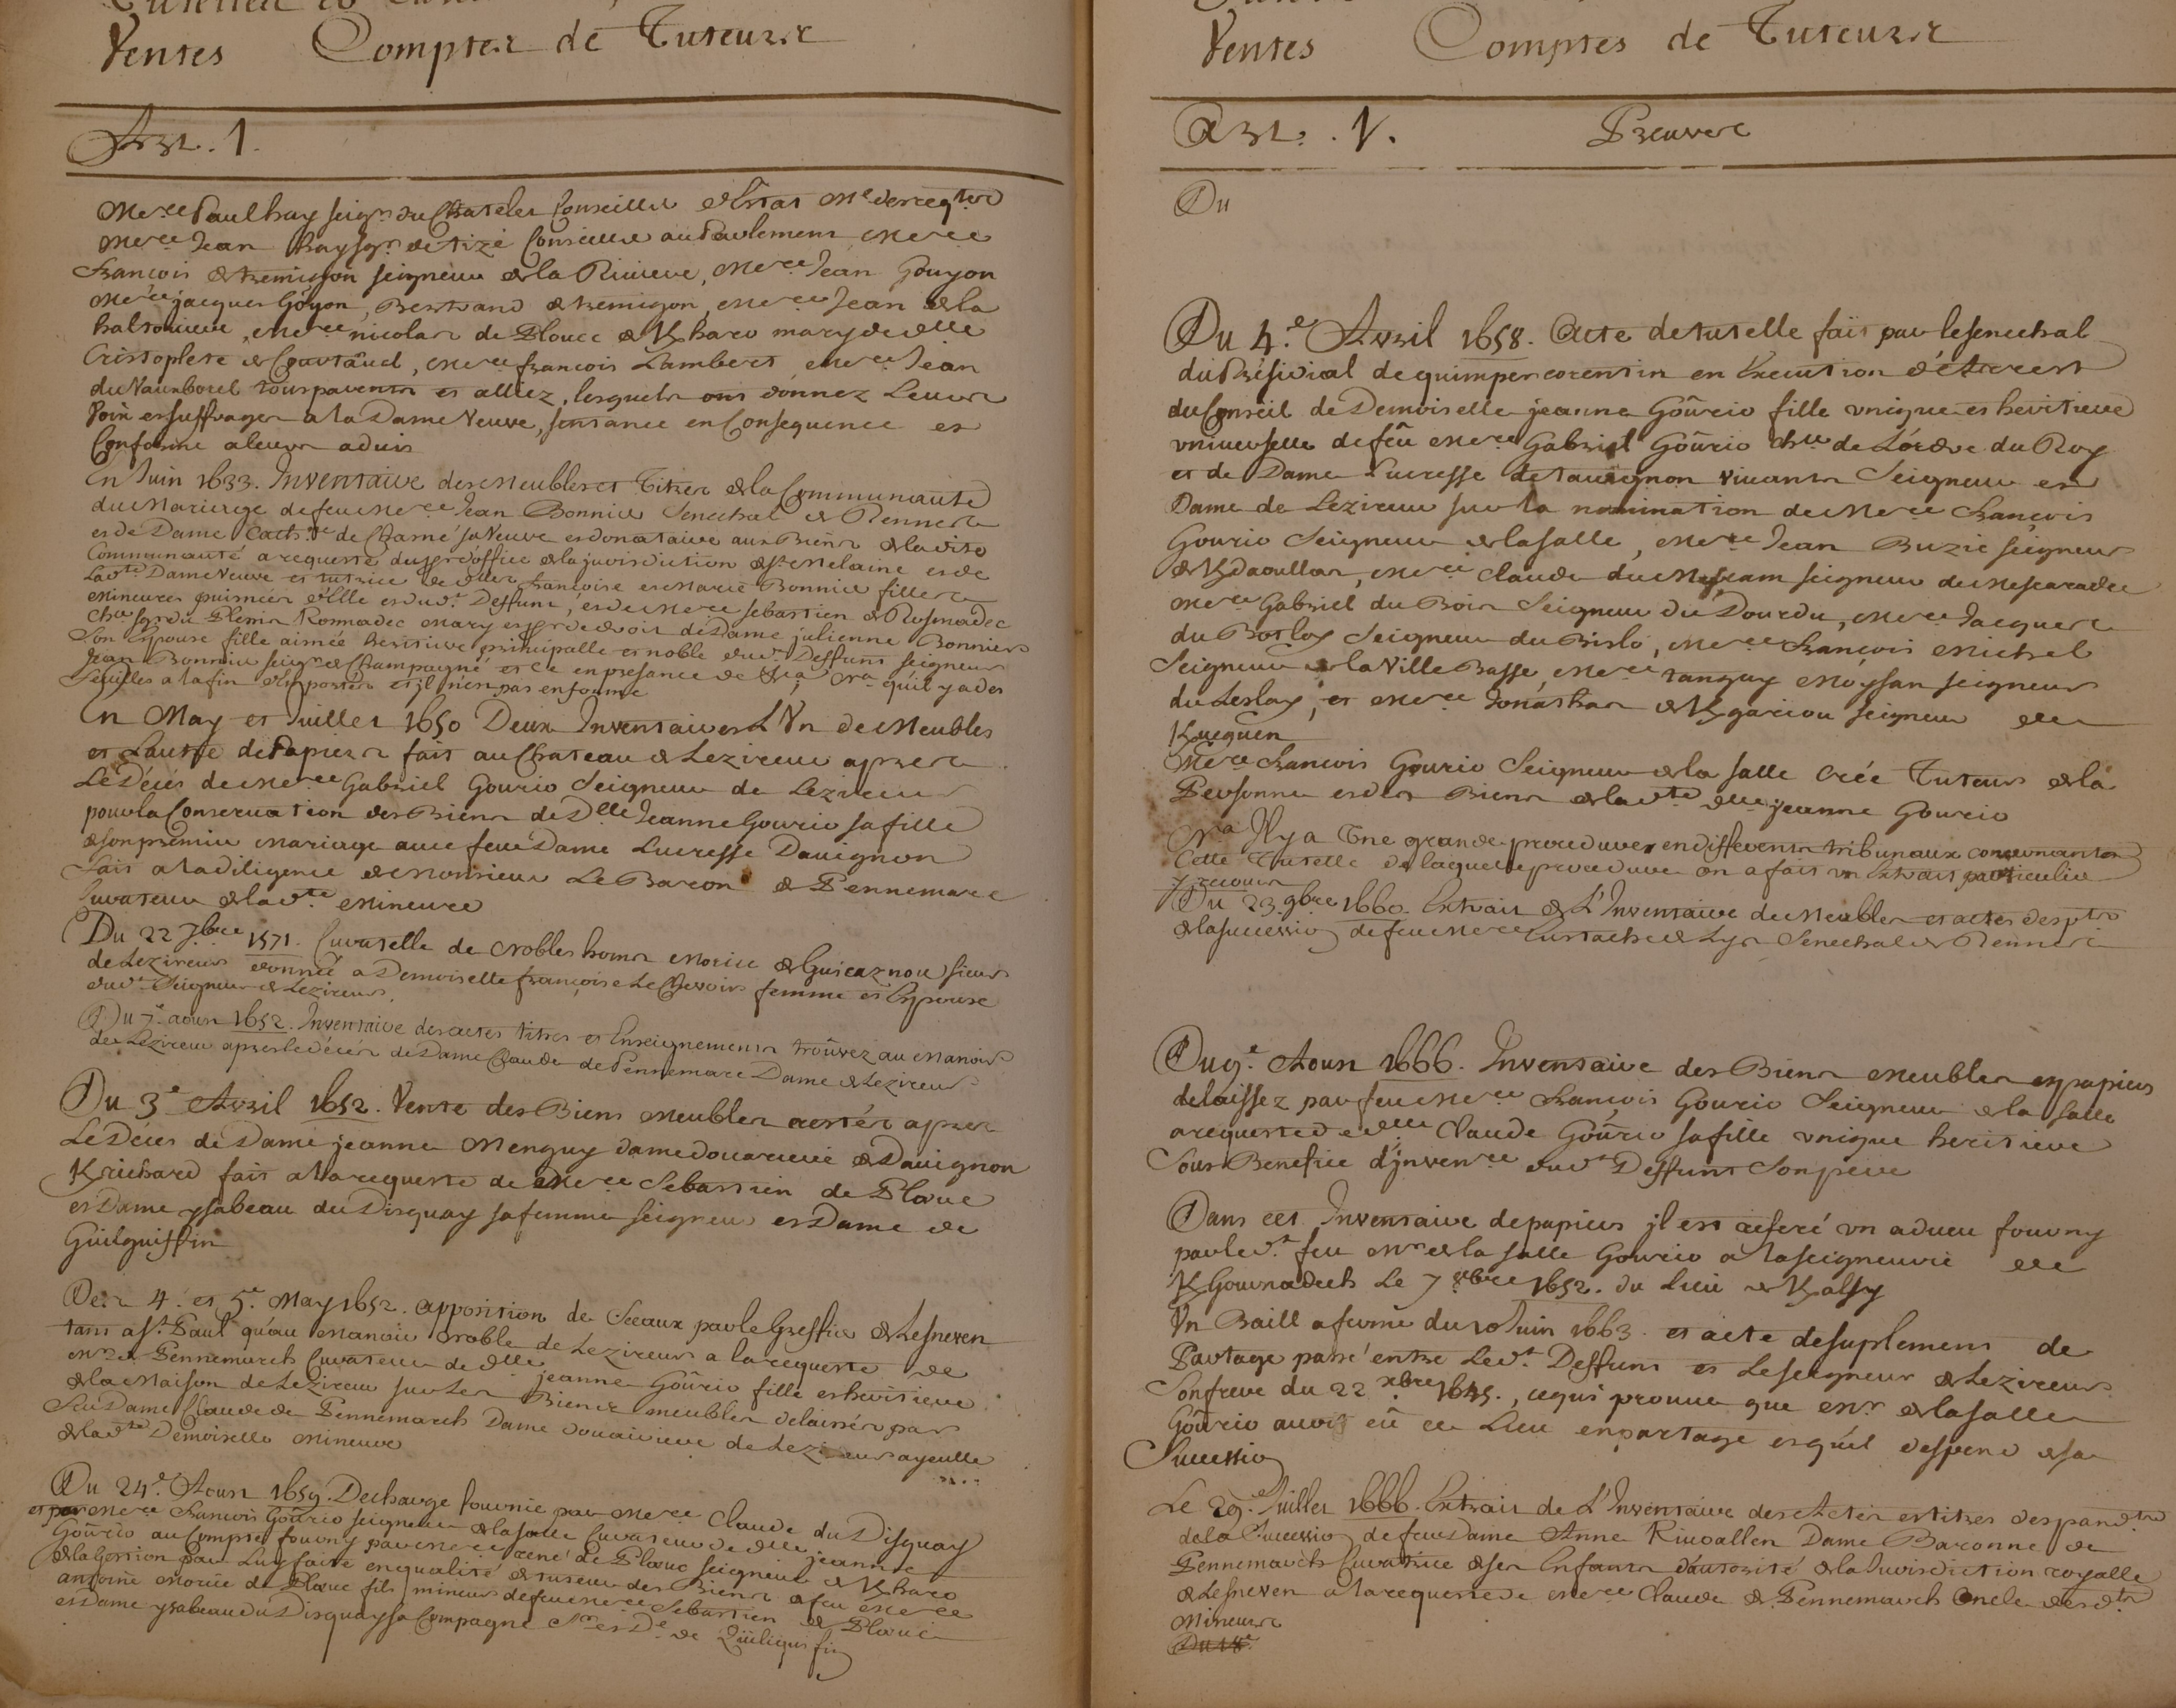 Ventes Comptes de Tuteurs
Art. 1.
Mere Paul hay seigr du Chatelet Conseiller d'Estat Me des reqtes
Mere Jean hay sgr de tizé Conseiller au Parlement, Mere
François de tremigon seigneur de la Riviere, Mere Jean Gouyon
Mere jacques Goyon, Bertrand de tremigon, Mere Jean de la
, Mere nicolas de Plouec de Kharo mary de delle
de , Mere francois Lambert, Mere Jean
du Vauborel tous parents et alliez, lesquels ont donnez Leurs
voix et suffrages a la Dame Veuve, sentance en Consequence et
Conforme a leurs aduis
En Juin 1633. Inventaire des Meubles et Titres de la Communauté
du Mariage de feu Mere Jean Bonnier Senechal de Rennes
et de Dame Cath.ne de Charné sa Veuve et donataire aux Biens de la dite
Communauté a requeste du procr d'office de la jurisdiction de st Melaine et de
La de Dame Veuve et tutrice de delles francoise et Marie Bonnier filles
Mineures puisnées d'Elle et du dt Deffunt, et de Mere sebastien de Rosmadec
cher sgr du Plessix Rosmadec Mary et pr de droit de Dame julienne Bonnier
Son Epouse fille aisnée heritiere principalle et noble du dt Deffunt seigneur
Jean Bonnier seigr de Champagné et ce en presance de Nta quil y a des
feuilles a la fin et il n'est pas en forme
En May et Juillet 1650 Deux Inventaires L'Vn de Meubles
et Lautre de Papiers fait au Chateau de Lezireur apres
Le Décés de Mere Gabriel Gourio Seigneur de Lezireur
pour la Conservation des Biens de Delle Jeanne Gourio sa fille
de son premier Mariage avec feue Dame Lucresse Davignon
fait a la diligence de Monsieur Le Baron de Pennemarc
Curateur de la dte Mineure
Du 22 7bre 1571. Curatelle de Nobles homs Morice de Guicaznou sieur
de Lezireur donnée a Demoiselle françoise Le Chevoir femme et Epouse
du dt Seigneur de Lezireur.
Du 7e aoust 1652. Inventaire des actes titres et Enseignements trouvez au Manoir
de Lezireur apres le décés de Dame Claude de Pennemarc Dame de Lezireur
Du 3e Avril 1652. Vente des Biens Meubles restés apres
Le Déces de Dame jeanne Menguy dame douariere de Davignon
Krichard fait a la requeste de Mere Sebastien de Ploeuc
et Dame ysabeau du Disquay sa femme seigneur et Dame de
Guilguiffin
Des 4. et 5e. May 1652. apposition de Sceaux par le Greffier de Lesneven
tant a St. Paul qu'au Manoir Noble de Lezireur a la requeste de
Mr. de Pennemarch Curateur de delle jeanne Goûrio fille et heritiere
de la Maison de Lezireur sur les Biens meubles delaissés par
feu Dame Claude de Pennemarch Dame douairiere de Lezireur ayeulle
de la dte Demoiselle Mineure
Du 24e. Aoust 1659. Decharge fournie par Mere Claude du Disquay
et par Mere francois Goûrio seigneur de la salle Curateur de delle jeanne
Goûrio au Compte fourny par Mere rené de Ploeuc seigneur de Kharo
de la Gestion par Luy faite en qualité de tuteur des Biens de feu Mere
antoine Morice de Ploeuc fils mineur de feu Mere Sebastien de Ploeuc
et Dame ysabeau du Disquay sa Compagne Sr. et De. de Quiliguiffin
Ventes Comptes de Tuteurs
Art. V. Preuves
Du
Du 4.e Avril 1658. Acte de tutelle fait par le senechal
du Présidial de quimpercorentin en Execution d'Arrest
du Conseil de Demoiselle jeanne Goûrio fille vnique et heritiere
vniverselle de feû Mere Gabriel Goûrio cher de L'órdre du Roy
et de Dame Lucresse de tauignon vivants Seigneur et
Dame de Lezireur sur la nomination de Mere François
Gourio Seigneur de la salle, Mere Jean Buzic seigneur
de Kdaoullas, Mere Claude du Mescam seigneur de Mescaradec
Mere Gabriel du Bois Seigneur du Dourdu, Mere Jacques
du Botloy Seigneur du Bislo, Mere Francois Michel
Seigneur de la Ville Basse, Mere tanguy Moysan seigneur
du Leslay, et Mere Jonathas de Kgariou seigneur de
Kueguen
Mere Francois Gourio Seigneur de la salle Créé Tuteur de la
Personne et des Biens de la dte delle jeanne Gourio
Nta Il y a Une grande procedure en differents tribunaux concernant
Cette Tutelle de laquelle procedure on a fait vn Extrait particulier
y recourir
Du 23 9bre 1660. Extrait de L'Inventaire de Meubles et actes
de la succession de feu Mere Eustache de Lys Senechal de Rennes
Du 9e. Aoust 1666. Inventaire des Biens Meubles et papiers
delaissez par feu Mere Francois Gourio Seigneur de la salle
a requeste de delle Claude Goûrio sa fille vnique heritiere
Sous Benefice d'jnvenre du dt Deffunt Son pere
Dans cet Inventaire de papiers jl est referé vn adveu fourny
par le dt. feu Mr de la salle Gourio a la seigneurie de
KGournadech Le 7 8bre 1652. du Lieu de Kalsy
Vn Baill a ferme du 10 Juin 1663. et acte de suplement de
Partage passé entre Le dt. Deffunt et Le seigneur de Lezireur
Son frere du 22 xbre 1645., ce qui prouve que Mr de la salle
Goûrio avoit eû ce Lieu en partage et qu'il despend de sa
Succession
Le 29.e Juillet 1666. Extrait de L'Inventaire des Actes et titres despandts
de la Succession de feue Dame Anne Rivoallen Dame Baronne de
Pennemarch Curatrice de ses Enfants d'autorité de la Jurisdiction royalle
de Lesneven a la requeste de Mere Claude de Pennemarch Oncle des dts
Mineurs
Du 18e.